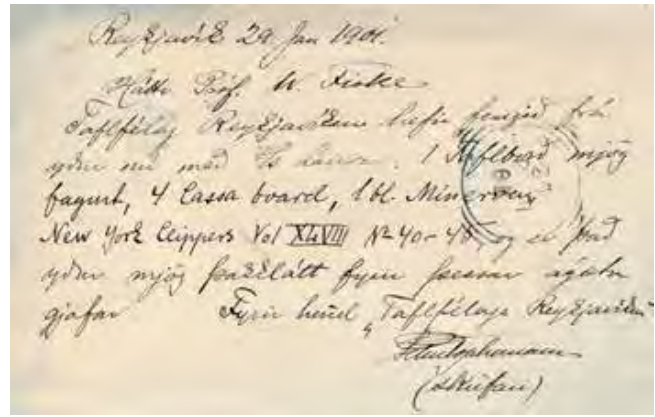 Reykjavík 29 Jan 1901.
Hátt. Próf. W. Fiske
Taflfélag Reykjavíkur hefir fengið frá
yður nú með 1 taflborð mjög
fagurt, 4 Cassa board, 1 bl. Minerva,
New York Clippers Vol XLVIII No 40-45, og er það
yður mjög þakklátt fyrir þessar ágætu
gjafar Fyrir hönd „Taflfélags Reykjavíkur"
(skrifari)